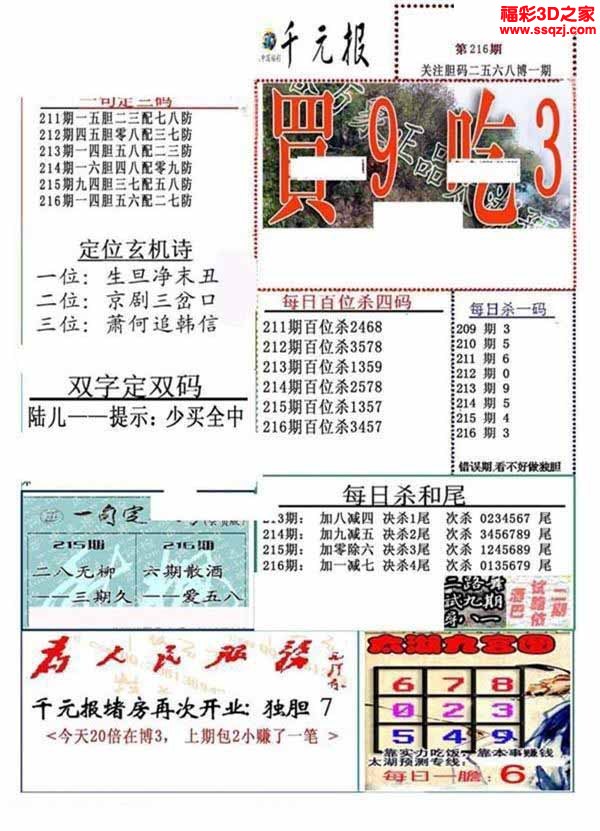 福彩3D之家
www.ssqzj.com
千元报
第216期
关注胆码二五六八博一期
一句定三码
211期一五胆二三配七八防
212期四五胆零八配三七防
213期一四胆五八配二三防
214期一六胆四八配零九防
215期九四胆三七配五八防
216期一四胆五六配二七防
買 9 吃 3
定位玄机诗
一位：生旦净末丑
二位：京剧三岔口
三位：萧何追韩信
双字定双码
陆儿——提示：少买全中
每日百位杀四码
211期百位杀2468
212期百位杀3578
213期百位杀1359
214期百位杀2578
215期百位杀1357
216期百位杀3457
每日杀一码
209 期 3
210 期 5
211 期 6
212 期 0
213 期 9
214 期 5
215 期 4
216 期 3
错误期,看不好做独胆
每日杀和尾
213期： 加八减四 决杀1尾 次杀 0234567 尾
214期： 加九减五 决杀2尾 次杀 3456789 尾
215期： 加零除六 决杀3尾 次杀 1245689 尾
216期： 加一减七 决杀4尾 次杀 0135679 尾
一句定
215期
二八无柳
——三期久
216期
六期散酒
——爱五八
为人民服务
千元报堵房再次开业：独胆 7
<今天20倍在博3， 上期包2小赚了一笔 >
太湖九宫图
6 7 8
0 2 3
5 4 9
靠实力吃饭，靠本事赚钱
太湖预测专线：
每日一胆：6